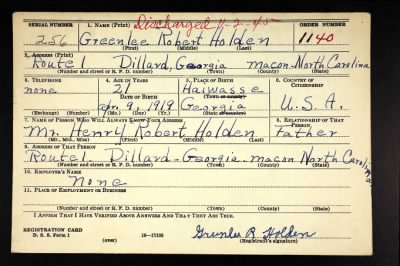 Discharged 11-2-45
SERIAL NUMBER 1. NAME (Print) ORDER NUMBER
256 Greenlee Robert Holden 1140
(First) (Middle) (Last)
2. ADDRESS (Print)
Route 1 Dillard, Georgia macon North Carolina
(Number and street or R. F. D. number) (Town) (County) (State)
3. TELEPHONE 4. AGE IN YEARS 5. PLACE OF BIRTH 6. COUNTRY OF CITIZENSHIP
none 21 Haiwasse
DATE OF BIRTH (Town or county)
apr. 9, 1919 Georgia U.S.A.
(Exchange) (Number) (Mo.) (Day) (Yr.) (State or country)
7. NAME OF PERSON WHO WILL ALWAYS KNOW YOUR ADDRESS 8. RELATIONSHIP OF THAT PERSON
Mr. Henry Robert Holden Father
(Mr., Mrs., Miss) (First) (Middle) (Last)
9. ADDRESS OF THAT PERSON
Route 1 Dillard - Georgia - macon North Carolina
(Number and street or R. F. D. number) (Town) (County) (State)
10. EMPLOYER'S NAME
None
11. PLACE OF EMPLOYMENT OR BUSINESS
(Number and street or R. F. D. number) (Town) (County) (State)
I AFFIRM THAT I HAVE VERIFIED ABOVE ANSWERS AND THAT THEY ARE TRUE.
REGISTRATION CARD
D. S. S. Form 1 16-17105 Greenlee R Holden
(over) (Registrant's signature)